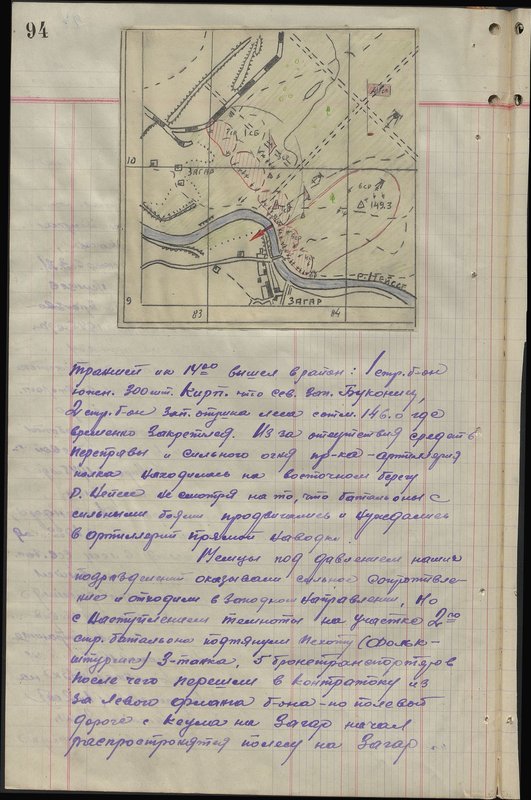 94
1 СБ
10
ЗАГАР
149.3
р. Нейссе
9
ЗАГАР
83
84
к 14⁰⁰ вышел в район: 1 стр. б-он
южн. 300 мт. Кирп. что сев. зап. Буковиц,
2 стр. б-он зап. опушка леса с отм. 146.0 где
временно закрепился. Из за отсутствия средств
переправы и сильного огня пр-ка - артиллерия
полка находилась на восточном берегу
р. Нейссе не смотря на то, что батальоны с
сильными боями продвигались и нуждались
в артиллерии прямой наводки.
Немцы под давлением наших
подразделений оказывали сильное сопротивле-
ние и отходили в западном направлении, Но
с наступлением темноты на участке 2го
стр. батальона подтянули пехоту (Фольк-
штурмов) 3-танка, 5 бронетранспортеров
после чего перешли в контратоку из
за левого фланга б-она - по полевой
дороге с Кеула на Загар начал
распростронятся по лесу на Загар